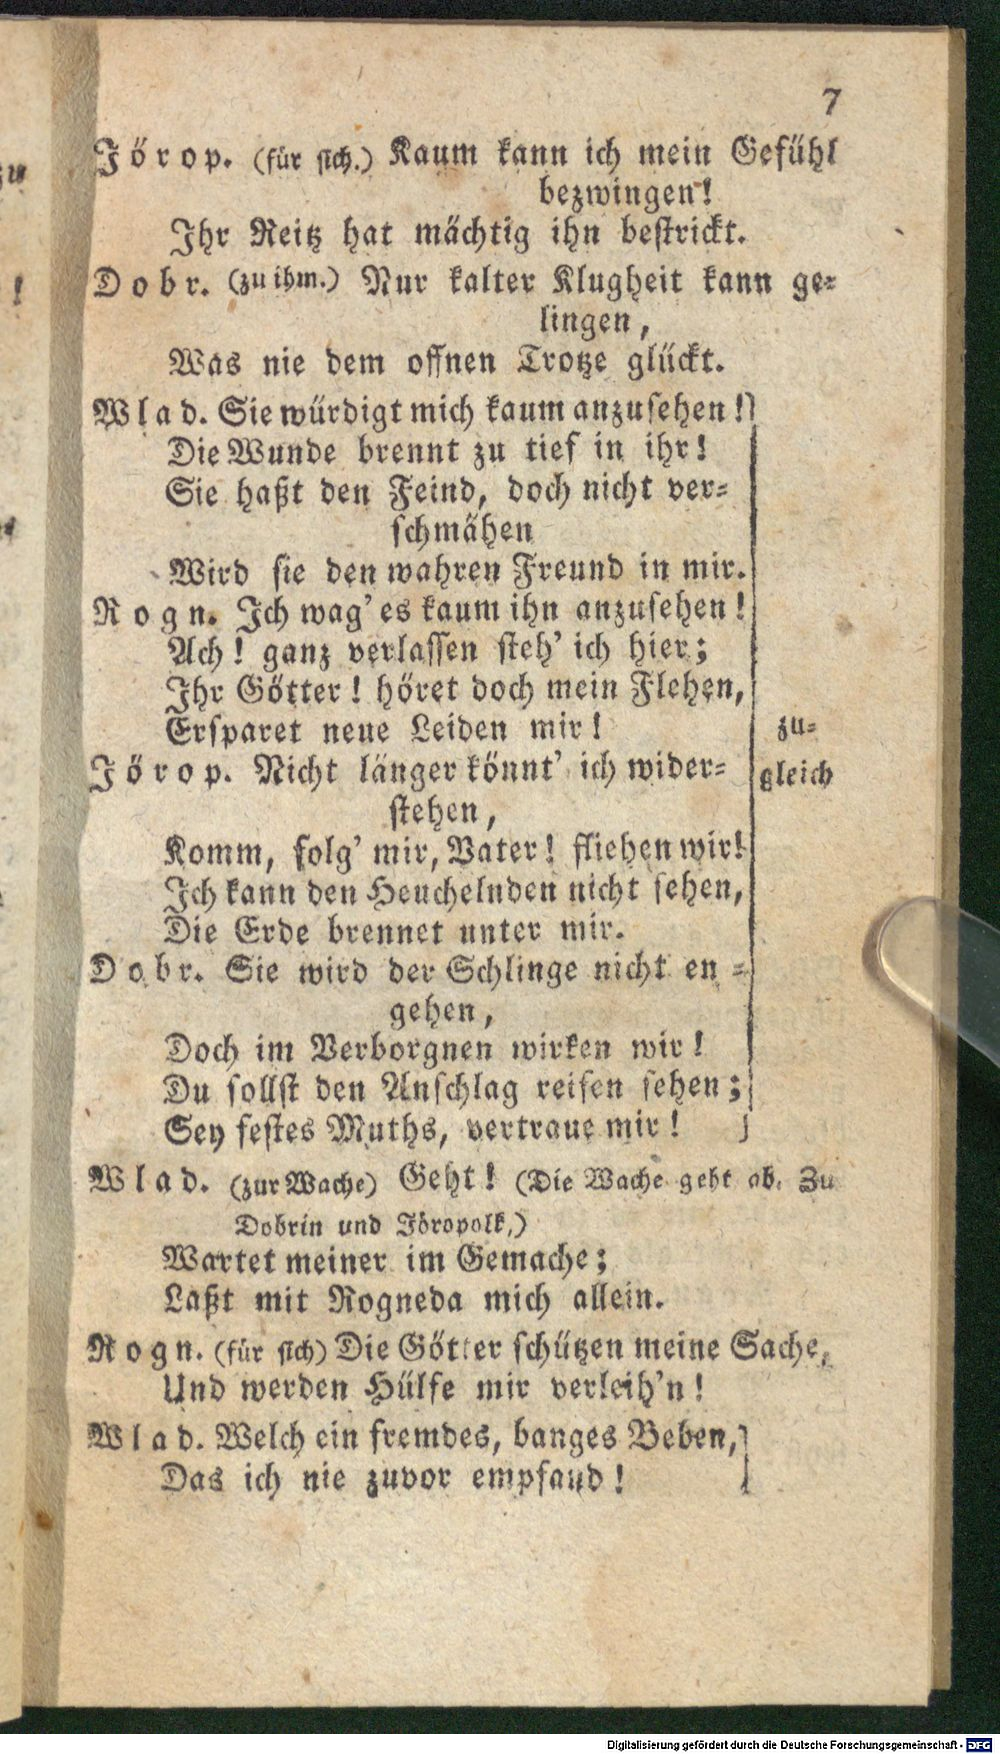 7
Jörop. (für sich.) Kaum kann ich mein Gefühl
bezwingen!
Ihr Reitz hat mächtig ihn bestrickt.
Dobr. (zu ihm.) Nur kalter Klugheit kann ge-
lingen,
Was nie dem offnen Trotze glückt.
Wlad. Sie würdigt mich kaum anzusehen!
Die Wunde brennt zu tief in ihr!
Sie haßt den Feind, doch nicht ver-
schmähen
Wird sie den wahren Freund in mir.
Rogn. Ich wag' es kaum ihn anzusehen!
Ach! ganz verlassen steh' ich hier;
Ihr Götter! höret doch mein Flehen,
Ersparet neue Leiden mir!
zu-
Jörop. Nicht länger könnt' ich wider-
gleich
stehen,
Komm, folg' mir, Vater! fliehen wir!
Ich kann den Heuchelnden nicht sehen,
Die Erde brennet unter mir.
Dobr. Sie wird der Schlinge nicht en-
gehen,
Doch im Verborgnen wirken wir!
Du sollst den Anschlag reifen sehen;
Sey festes Muths, vertraue mir!
Wlad. (zur Wache) Geht! (Die Wache geht ab. Zu
Dobrin und Jöropolk.)
Wartet meiner im Gemache;
Laßt mit Rogneda mich allein.
Rogn. (für sich) Die Götter schützen meine Sache,
Und werden Hülfe mir verleih'n!
Wlad. Welch ein fremdes, banges Beben,
Das ich nie zuvor empfand!
Digitalisierung gefördert durch die Deutsche Forschungsgemeinschaft - DFG